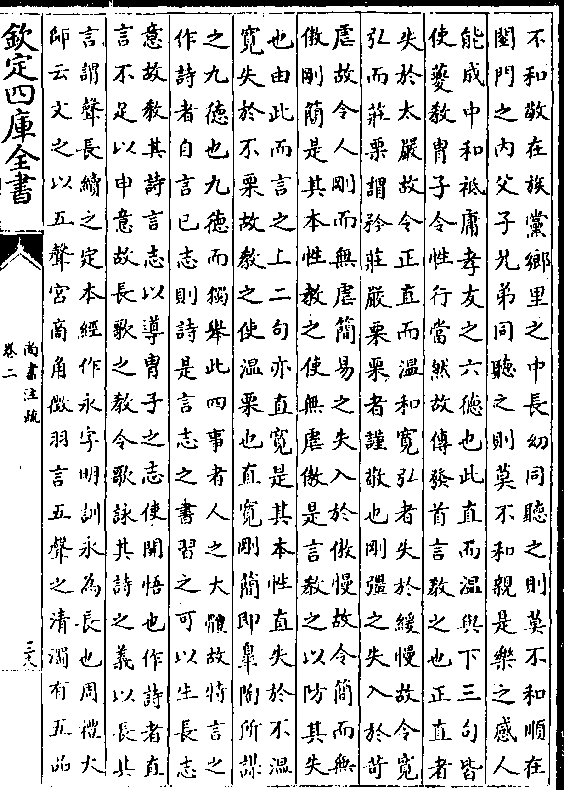 不和敬在族黨鄉里之中長幼同聽之則莫不和順在
閨門之内父子兄弟同聽之則莫不和親是樂之感人
能成中和祗庸孝友之六德也此直而溫與下三句皆
使夔教胄子令性行當然故傳發首言教之也正直者
失於太嚴故令正直而溫和寛弘者失於緩慢故令寛
弘而莊栗謂矜莊嚴栗栗者謹敬也剛彊之失入於苛
虐故令人剛而無虐簡易之失入於傲慢故令簡而無
傲剛簡是其本性教之使無虐傲是言教之以防其失
也由此而言之上二句亦直寛是其本性直失於不溫
寛失於不栗故教之使溫栗也直寛剛簡即臯陶所謀
之九德也九德而獨舉此四事者人之大體故特言之
作詩者自言已志則詩是言志之書習之可以生長志
意故教其詩言志以導胄子之志使開悟也作詩者直
言不足以申意故長歌之教令歌詠其詩之義以長其
言謂聲長續之定本經作永字明訓永為長也周禮大
師云文之以五聲宮商角徵羽言五聲之清濁有五品
欽定四庫全書
尚書注疏
卷二